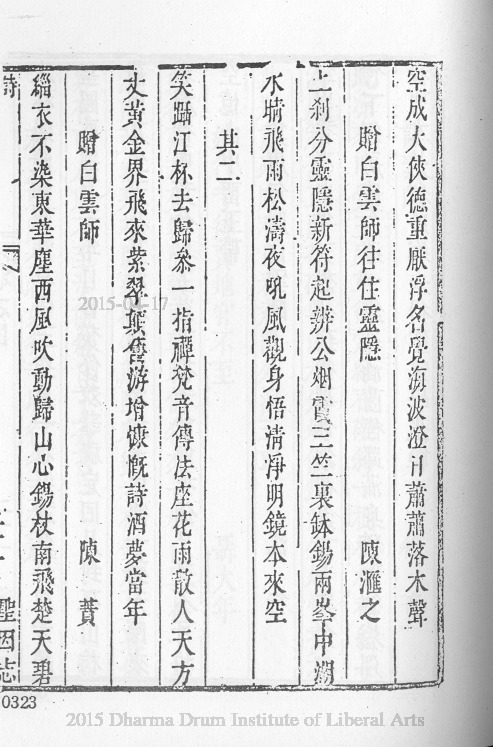 空成大俠德重厭浮名覺海波澄日蕭蕭落木聲
贈白雲師往住靈隱 陳滙之
上刹分靈隱新符起辨公烟霞三竺裏缽錫兩峯中澗
水晴飛雨松濤夜吼風觀身悟清淨明鏡本來空
其二
笑躡江杯去歸叅一指禪梵音傳法座花雨散人天方
丈黃金界飛來紫翠巔舊游增慷慨詩酒夢當年
贈白雲師 陳蕡
緇衣不染東華塵西風吹動歸山心錫杖南飛楚天碧
詩 聖因志
2015-04-17
0323
2015 Dharma Drum Institute of Liberal Arts